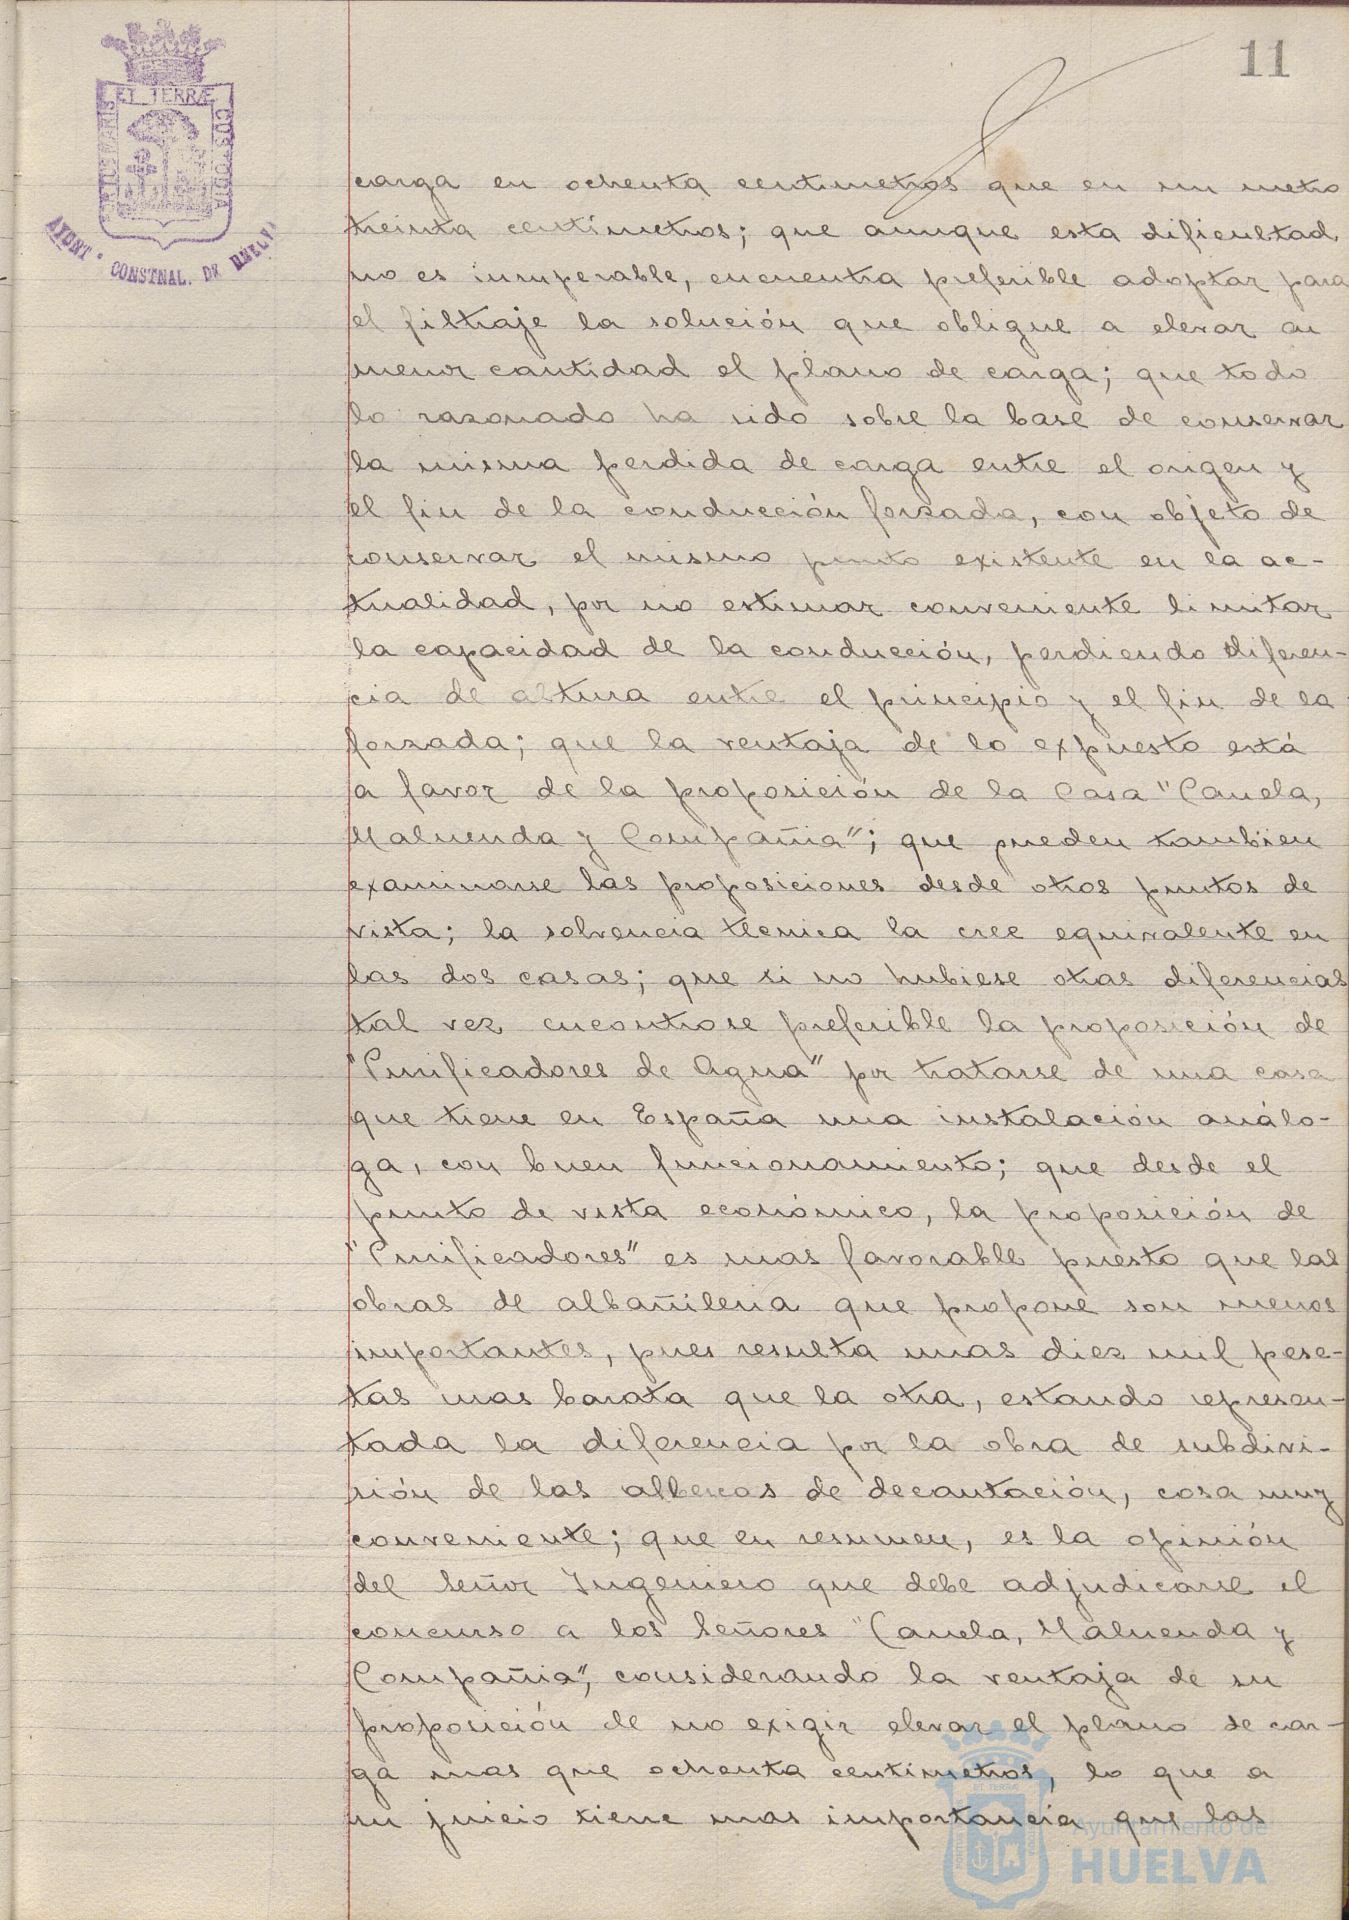 11
PORTUS MARIS ET TERRÆ CUSTODIA
AYUNT · CONSTNAL. DE HUELVA
carga en ochenta centimetros que en un metro
treinta centímetros; que aunque esta dificultad
no es insuperable, encuentra preferible adoptar para
el filtraje la solución que obligue a elevar en
menor cantidad el plano de carga; que todo
lo razonado ha sido sobre la base de conservar
la misma perdida de carga entre el origen y
el fin de la conducción forzada, con objeto de
conservar el mismo punto existente en la ac-
tualidad, por no estimar conveniente limitar
la capacidad de la conducción, perdiendo diferen-
cia de altura entre el principio y el fin de la
forzada; que la ventaja de lo expuesto está
a favor de la proposición de la Casa "Canela,
Maluenda y Compañia"; que pueden tambien
examinarse las proposiciones desde otros puntos de
vista; la solvencia técnica la cree equivalente en
las dos casas; que si no hubiese otras diferencias
tal vez encontrase preferible la proposición de
"Purificadores de Agua" por tratarse de una casa
que tiene en España una instalación análo-
ga, con buen funcionamiento; que desde el
punto de vista económico, la proposición de
"Purificadores" es mas favorable puesto que las
obras de albañileria que propone son menos
importantes, pues resulta unas diez mil pese-
tas mas barata que la otra, estando represen-
tada la diferencia por la obra de subdivi-
sión de las albercas de decantación, cosa muy
conveniente; que en resumen, es la opinión
del Señor Ingeniero que debe adjudicarse el
concurso a los Señores "Canela, Maluenda y
Compañia", considerando la ventaja de su
proposición de no exigir elevar el plano de car-
ga mas que ochenta centímetros, lo que a
su juicio tiene mas importancia que las
Ayuntamiento de
HUELVA